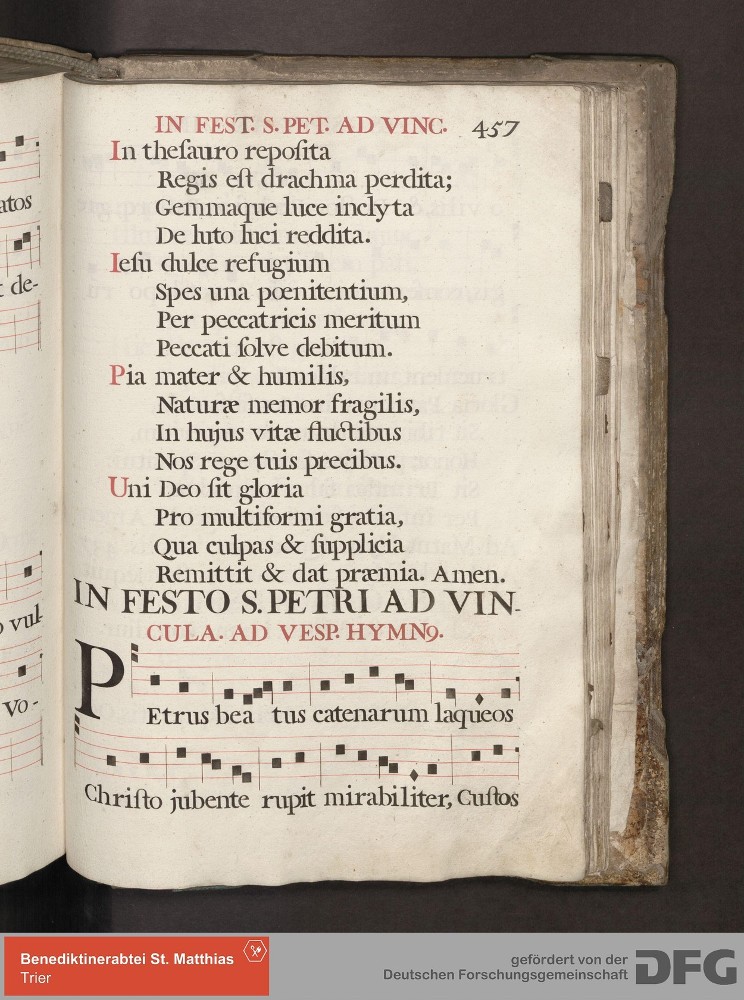 IN FEST. S. PET. AD VINC. 457
In theſauro repoſita
Regis eſt drachma perdita;
Gemmaque luce inclyta
De luto luci reddita.
Ieſu dulce refugium
Spes una pœnitentium,
Per peccatricis meritum
Peccati ſolve debitum.
Pia mater & humilis,
Naturæ memor fragilis,
In hujus vitæ fluctibus
Nos rege tuis precibus.
Uni Deo ſit gloria
Pro multiformi gratia,
Qua culpas & ſupplicia
Remittit & dat præmia. Amen.
IN FESTO S. PETRI AD VIN-
CULA. AD VESP. HYMN9.
PEtrus bea tus catenarum laqueos
Chriſto jubente rupit mirabiliter, Cuſtos
atos
de-
o vul-
Vo-
Benediktinerabtei St. Matthias
Trier
gefördert von der
Deutschen Forschungsgemeinschaft
DFG